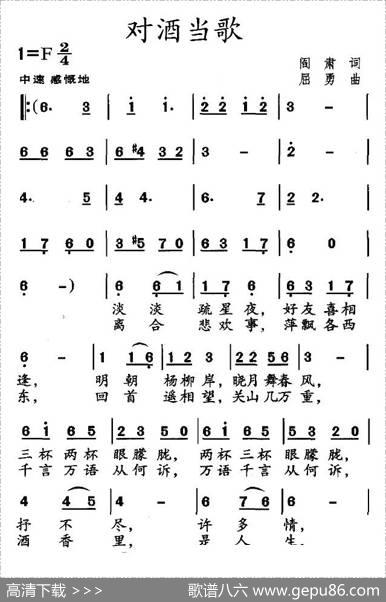 对酒当歌
1=F 2/4
阎肃 词
中速 感慨地
屈勇 曲
‖:(6· 3 | i i | i· | 2 2 i 2 | 3 - |
6 6 6 3 | 6 #4 3 2 | 3 - | 2 - |
4· 5 | 4 4· | 6· 7 | 2 2· |
1 7 6 0 | 3 #5 7 0 | 6 3 1 7 | 6 0 |
6 -) | 6 6 1 | 1 7 6 | 6 3 1 6 |
淡 淡 疏星夜, 好友喜相
离 合 悲欢事, 萍飘各西
6 - | 1 1 1 6 | 1 2 3 | 2 2 5 6 | 3 - |
逢, 明朝 杨柳岸, 晓月舞春 风,
东, 回首 遥相望, 关山几万 重,
6 i 6 5 | 2 3 5 0 | 6 i 6 5 | 5 2 3 0 |
三杯两杯 眼朦胧, 两杯三杯 眼朦胧,
千言万语 从何诉, 万语千言 从何诉,
4 4 5 | 4 - | 6 7 6 | 2 - |
抒 不 尽, 许 多 情,
酒 香 里, 是 人 生
高清下载 >>>
歌谱八六 www.gepu86.com